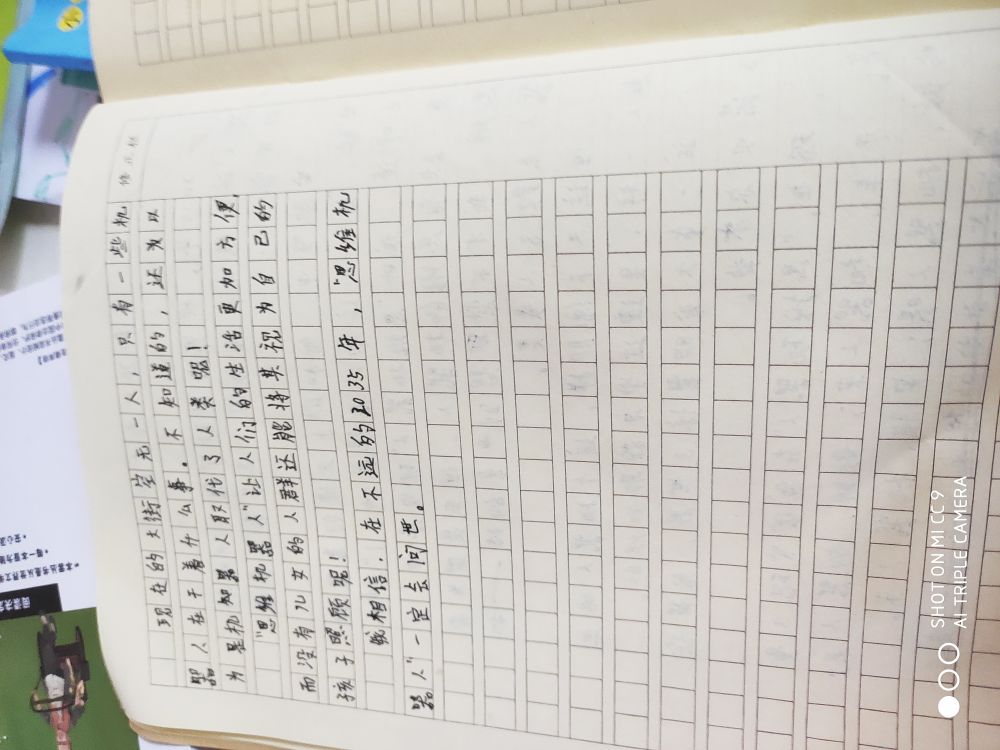 现在的大街空无一人，只有一些机
器人在干着什么事。不知道的，还为以
为是机器人取代了人类呢！
"思维机器人"让人们的生活更加方便，
而没有儿女的人群还能将其视为自己的
孩子照顾呢！
我相信．在不远的2035年，"思维机
器人"一定会问世。
SHOT ON MI CC9
AI TRIPLE CAMERA